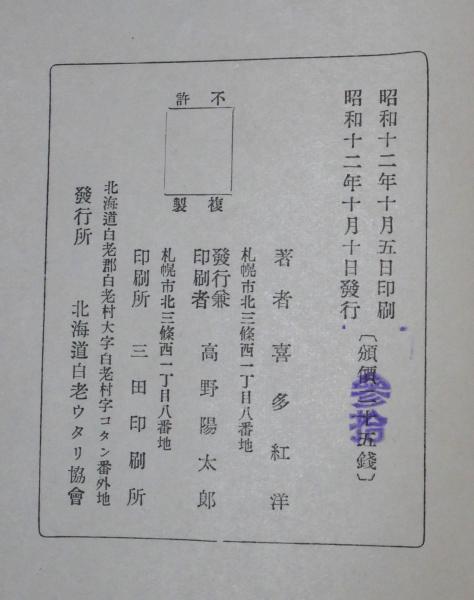 昭和十二年十月五日印刷
昭和十二年十月十日發行
〔頒價二十五錢〕
參拾
著者 喜多紅洋
札幌市北三條西一丁目八番地
發行兼
印刷者 高野陽太郎
札幌市北三條西一丁目八番地
印刷所 三田印刷所
不許
複製
北海道白老郡白老村大字白老村字コタン番外地
發行所 北海道白老ウタリ協會